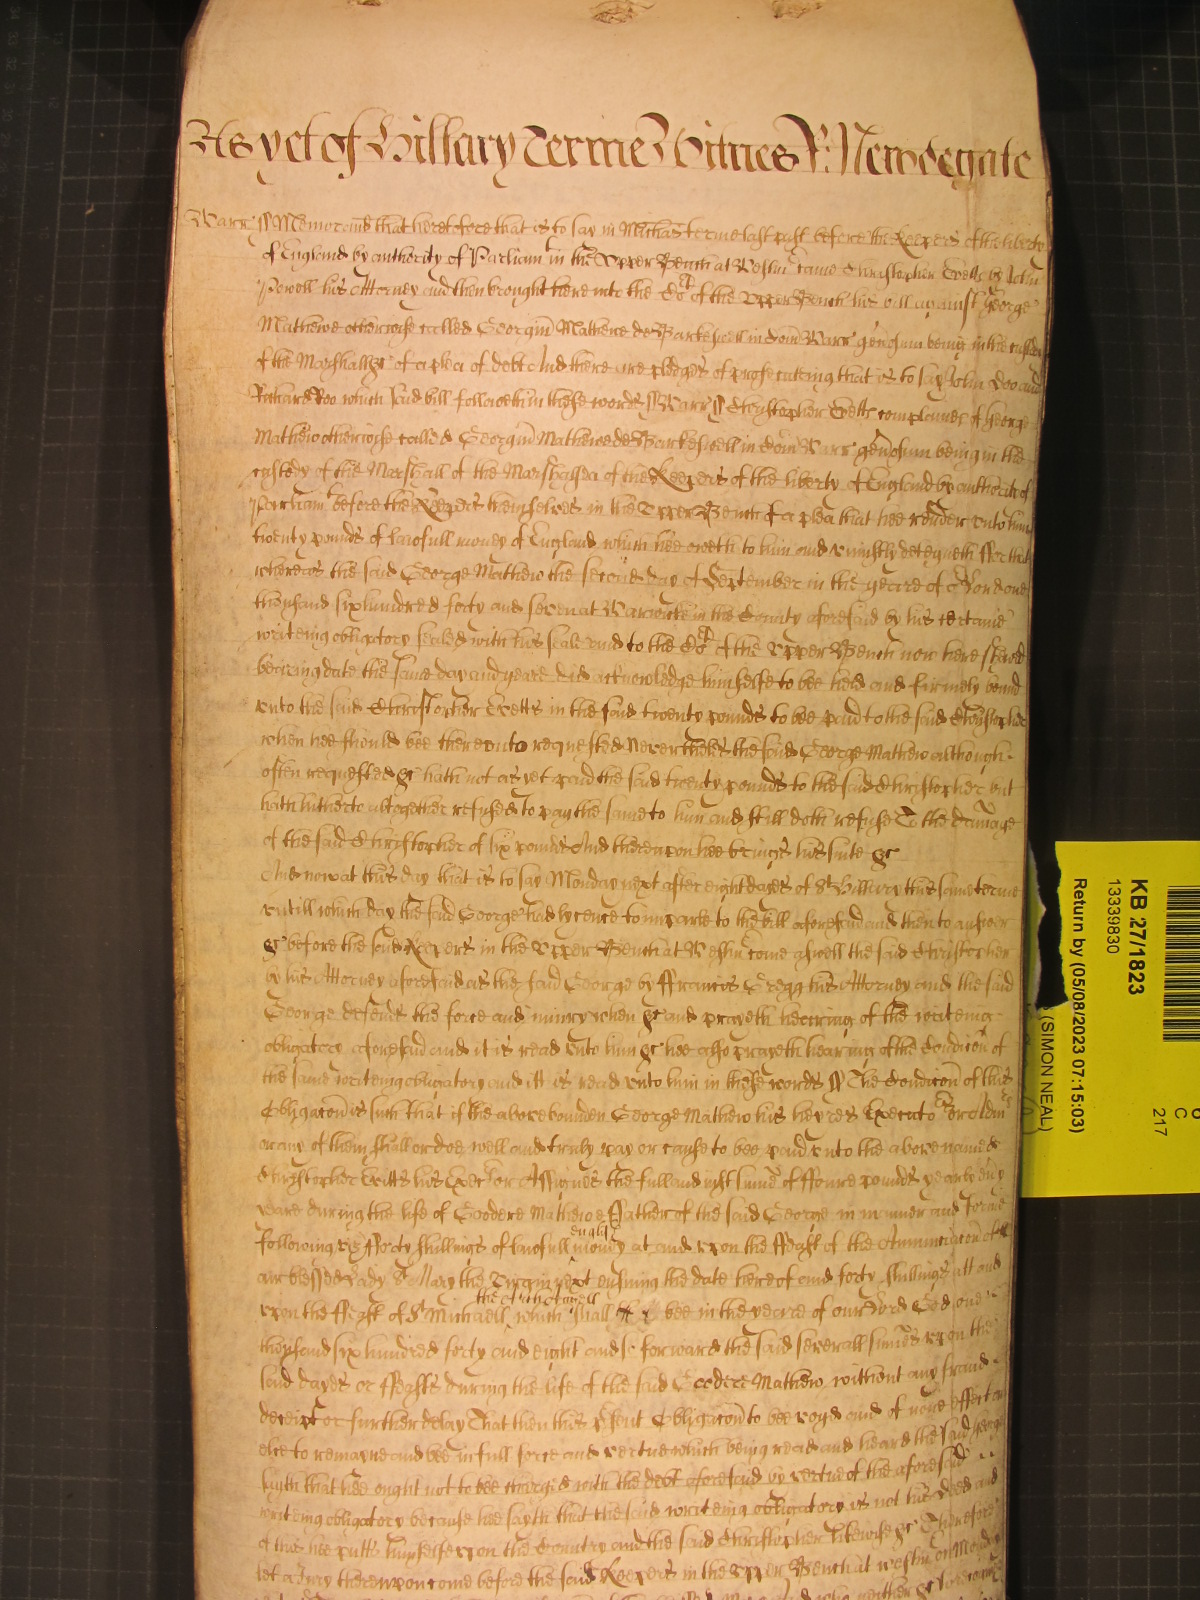 As yet of Hillary Terme Witnes R: Newdegate
Warr ss Memorand that heretofore that is to say in Michas terme last past before the Keepers of the liberty
of England by authority of Parliam^t in the Upper Bench at Westm^r came Christopher Evetts by John
Powell his Attorney and then brought here into the Co^rt of the Upper Bench his bill against George
Mathewe otherwise called Georgiu Mathewe de Barkeswell in Com Warr genosum being in the custody
of the Marshall &c of a plea of debt And there are pledges of prosecuting that is to say John Doo and
Richard Roo which said bill followeth in these words ss Warr ss Christopher Evetts complaines of George
Mathew otherwise called Georgiu Mathewe de Barkeswell in Com Warr genosum being in the
custody of the Marshall of the Marshalsea of the Keepers of the liberty of England by authority of
Parliam^t before the Keepers themselves in the Upper Bench of a plea that hee render unto him
twenty pounds of lawfull money of England which hee oweth to him and unjustly deteyneth ffor that
whereas the said George Mathew the second day of September in the yeare of o^r Lord one
thousand six hundred forty and seven at Warwicke in the County aforesaid by his certaine
writeing obligatory sealed with his seale and to the Co^rt of the Upper Bench now here shewed
beareing date the same day and yeare did acknowledge himselfe to bee held and firmely bound
unto the said Christopher Evetts in the said twenty pounds to bee paid to the said Christopher
when hee should bee thereunto requested Neverthelės the said George Mathew although
often requested &c hath not as yet paid the said twenty pounds to the said Christopher but
hath hitherto altogether refused to pay the same to him and still doth refuse To the damage
of the said Christopher of six pounds And thereupon hee brings his suite &c
And now at this day that is to say Monday next after eight dayes of S^t Hillary this same terme
untill which day the said George had lycence to imparle to the bill aforesaid and then to answer
&c before the said Keepers in the Upper Bench at Westm come aswell the said Christopher
by his Attorney aforesaid as the said George by ffrancis Gregg his Attorney and the said
George defends the force and iniury when &c and prayeth heareing of the writeing
obligatory aforesaid and it is read unto him &c hee also prayeth hearing of the Condicon of
the same writeing obligatory and itt is read unto him in these words ss The Condicon of this
Obligacon is such that if the above bounden George Mathew his heyres Executo^rs or Adm^rs
or any of them shall or doe well and truly pay or cause to bee paid unto the above named
Christopher Evetts his Exec^rs or Assignes the full and just sume of ffoure pounds yearely eu^ry
yeare during the life of Goodere Mathewe ffather of the said George in manner and forme
following viz fforty shillings of lawfull english money at and upon the ffeast of the Annunciacon of
our blessed Lady S^t Mary the Virgin next ensuing the date hereof and forty shillings att and
upon the ffeast of S^t Michaell the Archangell which shall bee in the yeare of our Lord God one
thousand six hundred forty and eight and soe forward the said severall sumes upon the
said dayes or ffeasts during the life of the said Goodere Mathew without any fraud
deceipt or further delay That then this psent Obligacon to bee voyd and of none effect or
else to remayne and bee in full force and vertue which being read and heard the said George
saith that hee ought not to bee charged with the debt aforesaid by vertue of the aforesaid
writeing obligatory because hee sayth that the said writeing obligatory is not his deed and
of this hee putts himselfe upon the Country and the said Christopher likewise &c Therefore
let a Jury thereupon come before the said Keepers in the Upper Bench at Westm on Monday
KB 27/1823
13339830
Return by (05/08/2023 07:15:03)
(SIMON NEAL)
C
217